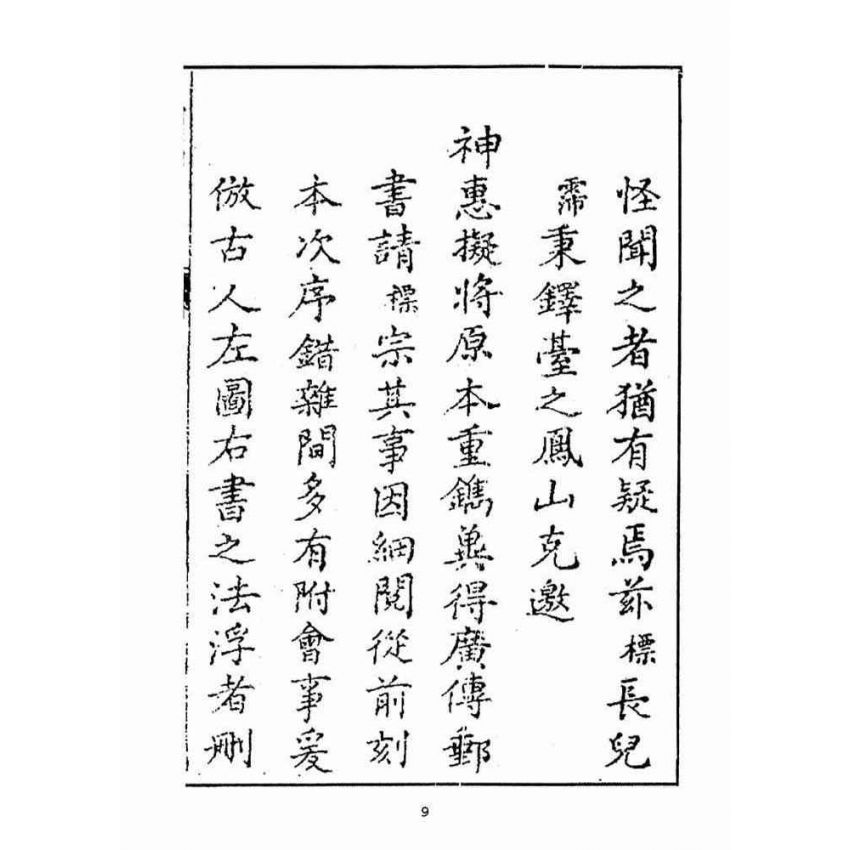 怪聞之者猶有疑焉茲標長兒
霈秉鐸臺之鳳山克邀
神惠擬將原本重鐫兾得廣傳郵
書請標宗其事因細閱從前刻
本次序錯雜間多有附會事爰
倣古人左圖右書之法浮者刪
9